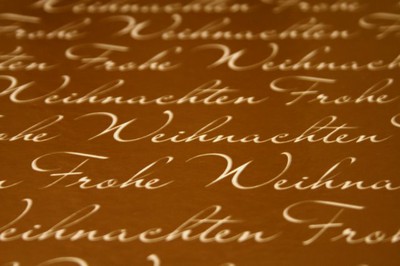 Weihnachten
Frohe Weihnachten
Frohe Weihnachten Frohe
Weihnachten Frohe
Frohe Weihnachten
Frohe Weihnachten
Weihnachten Frohe